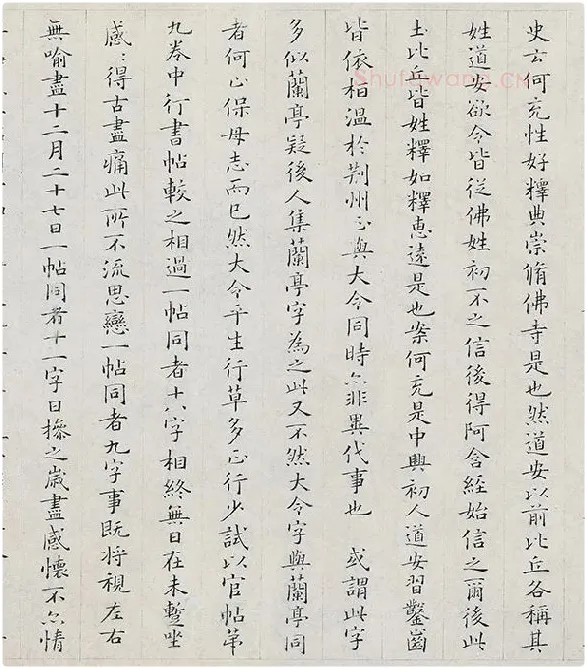 史云何充性好釋典崇脩佛寺是也然道安以前比丘各稱其
姓道安欲令皆從佛姓初不之信後得阿含經始信之爾後此
土比丘皆姓釋如釋惠遠是也案何充是中興初人道安習鑿齒
皆依桓溫於荊州正與大令同時亦非異代事也 或謂此字
多似蘭亭疑後人集蘭亭字為之此又不然大令字與蘭亭同
者何止保母志而已然大令平生行草多正行少試以官帖第
九卷中行書帖較之相過一帖同者十八字相終無日在未蹔坐
感〻得古盡痛此所不流思戀一帖同者九字事既將視左右
無喻盡十二月二十七日一帖同者十一字日操之歲盡感懷不亦情
Shufawang.CN